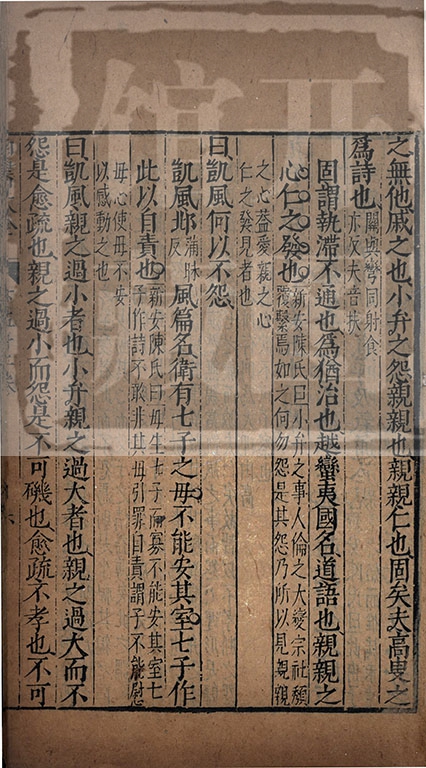 之無他戚之也小弁之怨親親也親親仁也固矣夫高叟之
爲詩也
關與彎同射食
亦反夫音扶
固謂執滯不通也爲猶治也越蠻夷國名道語也親親之
心仁之發也
新安陳氏曰小弁之事人倫之大變宗社顛
覆繫焉如之何勿怨是其怨乃所以見親親
之心益愛親之心
仁之發見者也
曰凱風何以不怨
凱風邶
蒲昧
反
風篇名衛有七子之母不能安其室七子作
此以自責也
新安陳氏曰母生七子而寡不能安其室七
子作詩不敢非其母引罪自責謂子不能慰
母心使母不安
以感動之也
曰凱風親之過小者也小弁親之過大者也親之過大而不
怨是愈疏也親之過小而怨是不可磯也愈疏不孝也不可